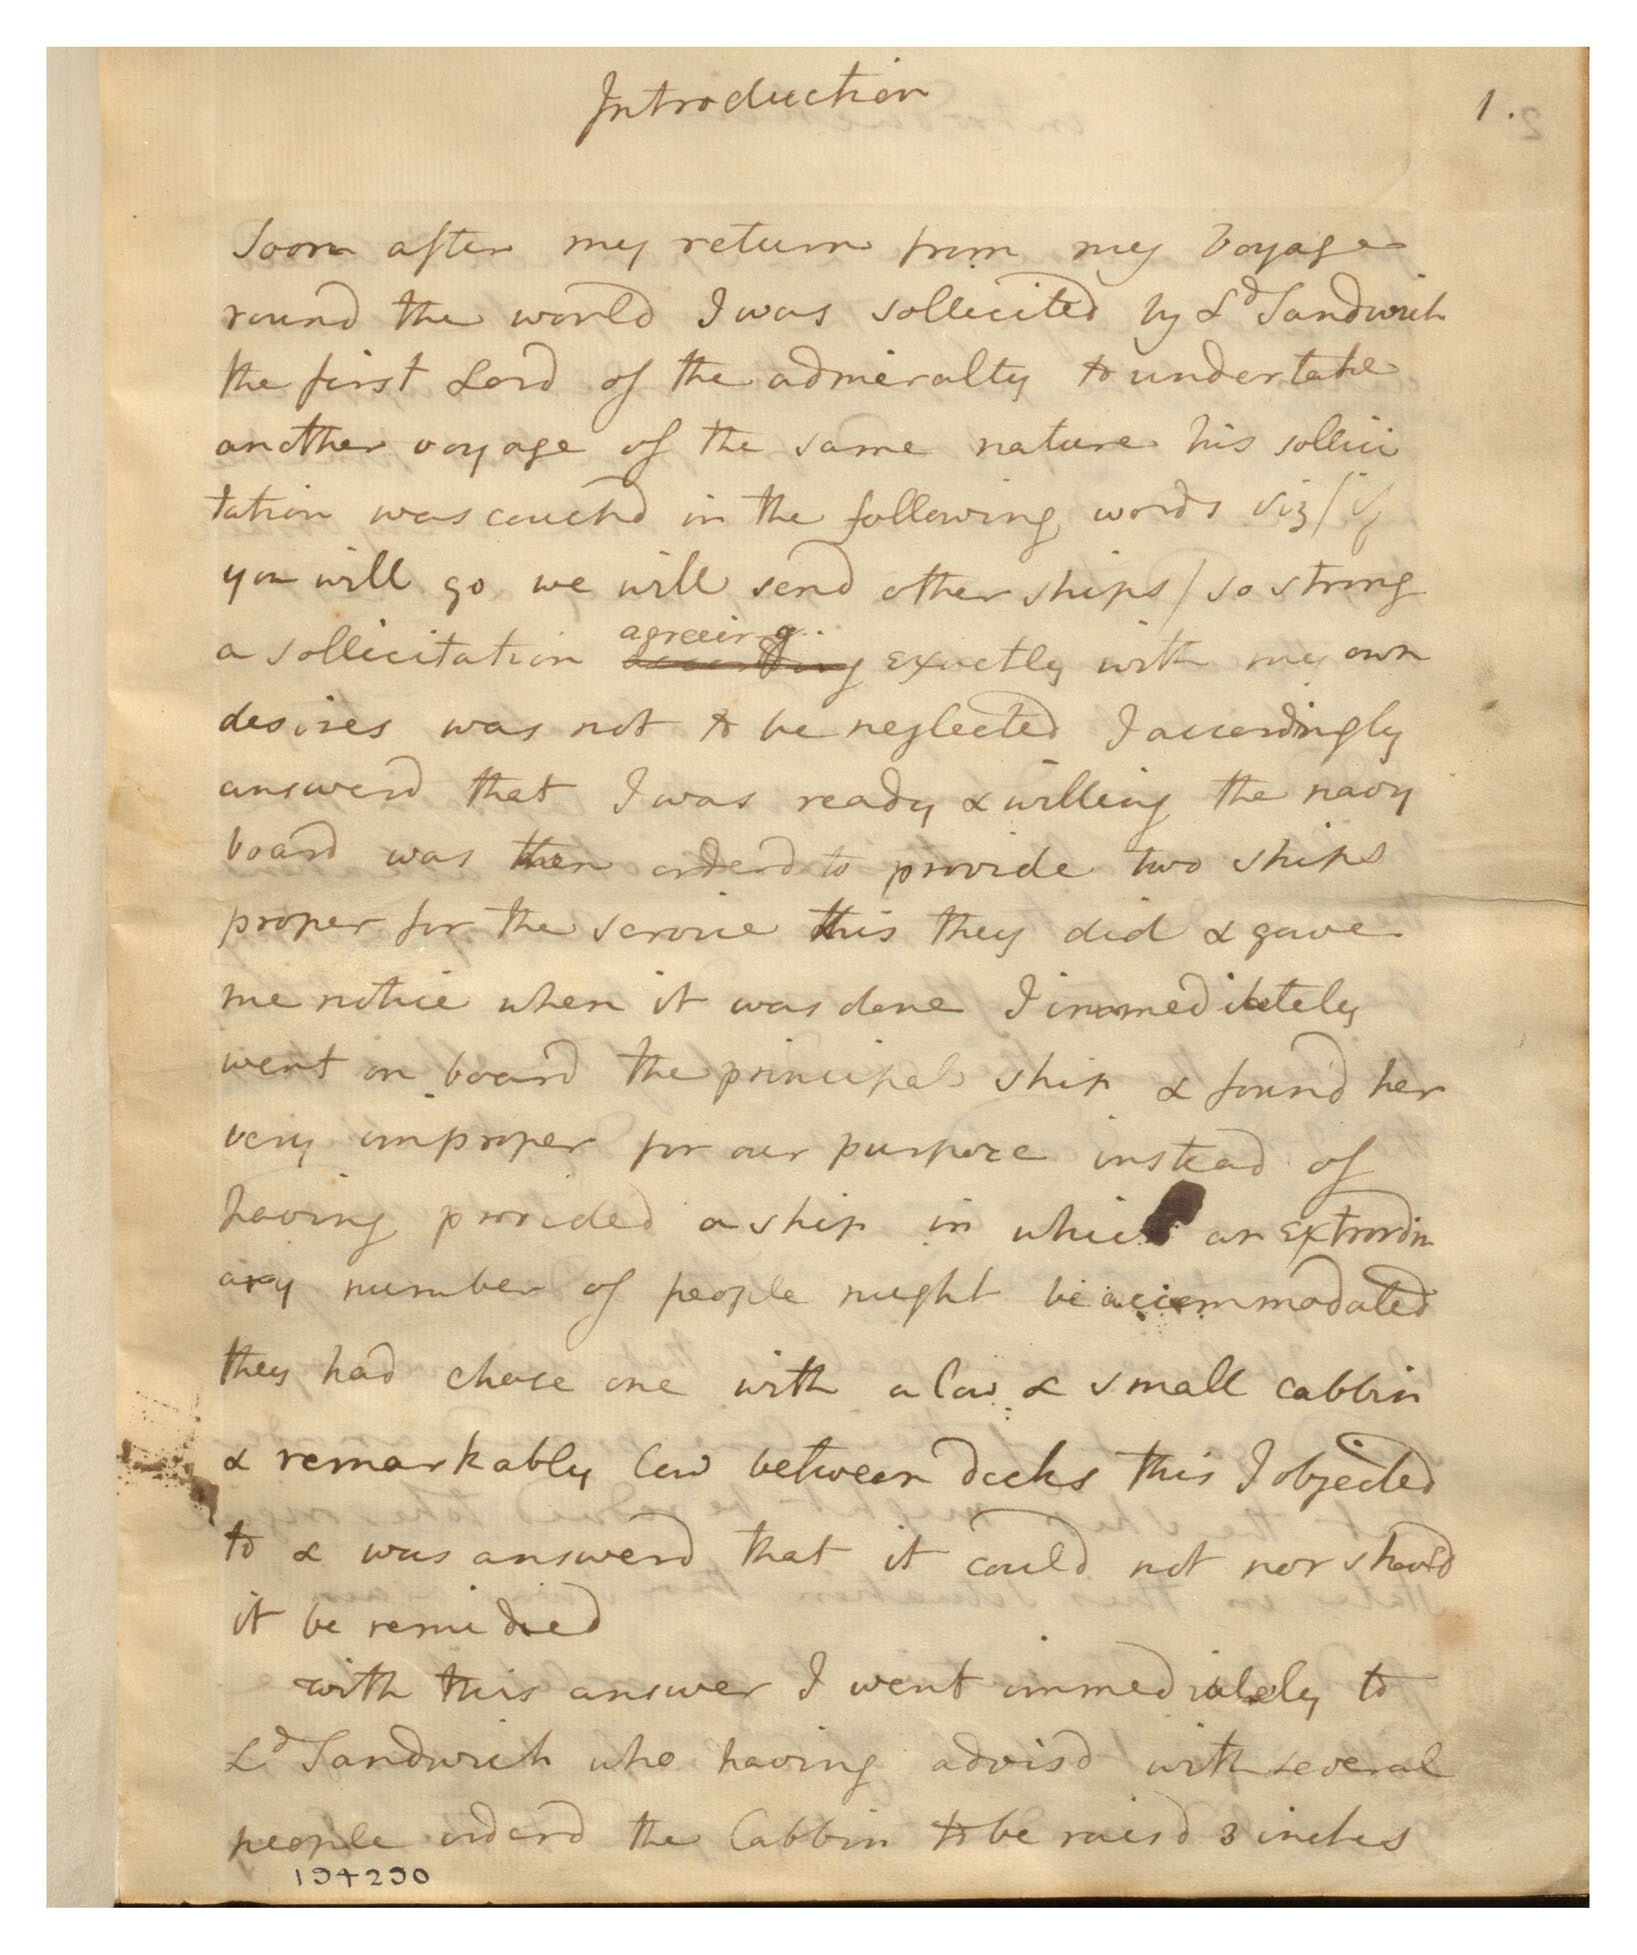 Introduction
1.
Soon after my return from my Voyage
round the world I was sollicited by Ld Sandwich
the first Lord of the admiralty to undertake
another voyage of the same nature his sollici
tation was couchd in the following words viz/ if
you will go we will send other ships / so strong
a sollicitation agreeing exactly with my own
desires was not to be neglected I accordingly
answerd that I was ready & willing the navy
board was then orderd to provide two ships
proper for the service this they did & gave
me notice when it was done I immediately
went on board the principal ship & found her
very improper for our purpose instead of
having provided a ship in which an extrordin
ary number of people might be accommodated
they had chose one with a low & small cabbin
& remarkably low between decks this I objected
to & was answerd that it could not nor should
it be remidied
with this answer I went immediately to
Ld Sandwich who having advisd with several
people orderd the Cabbin to be raisd 3 inches
194290